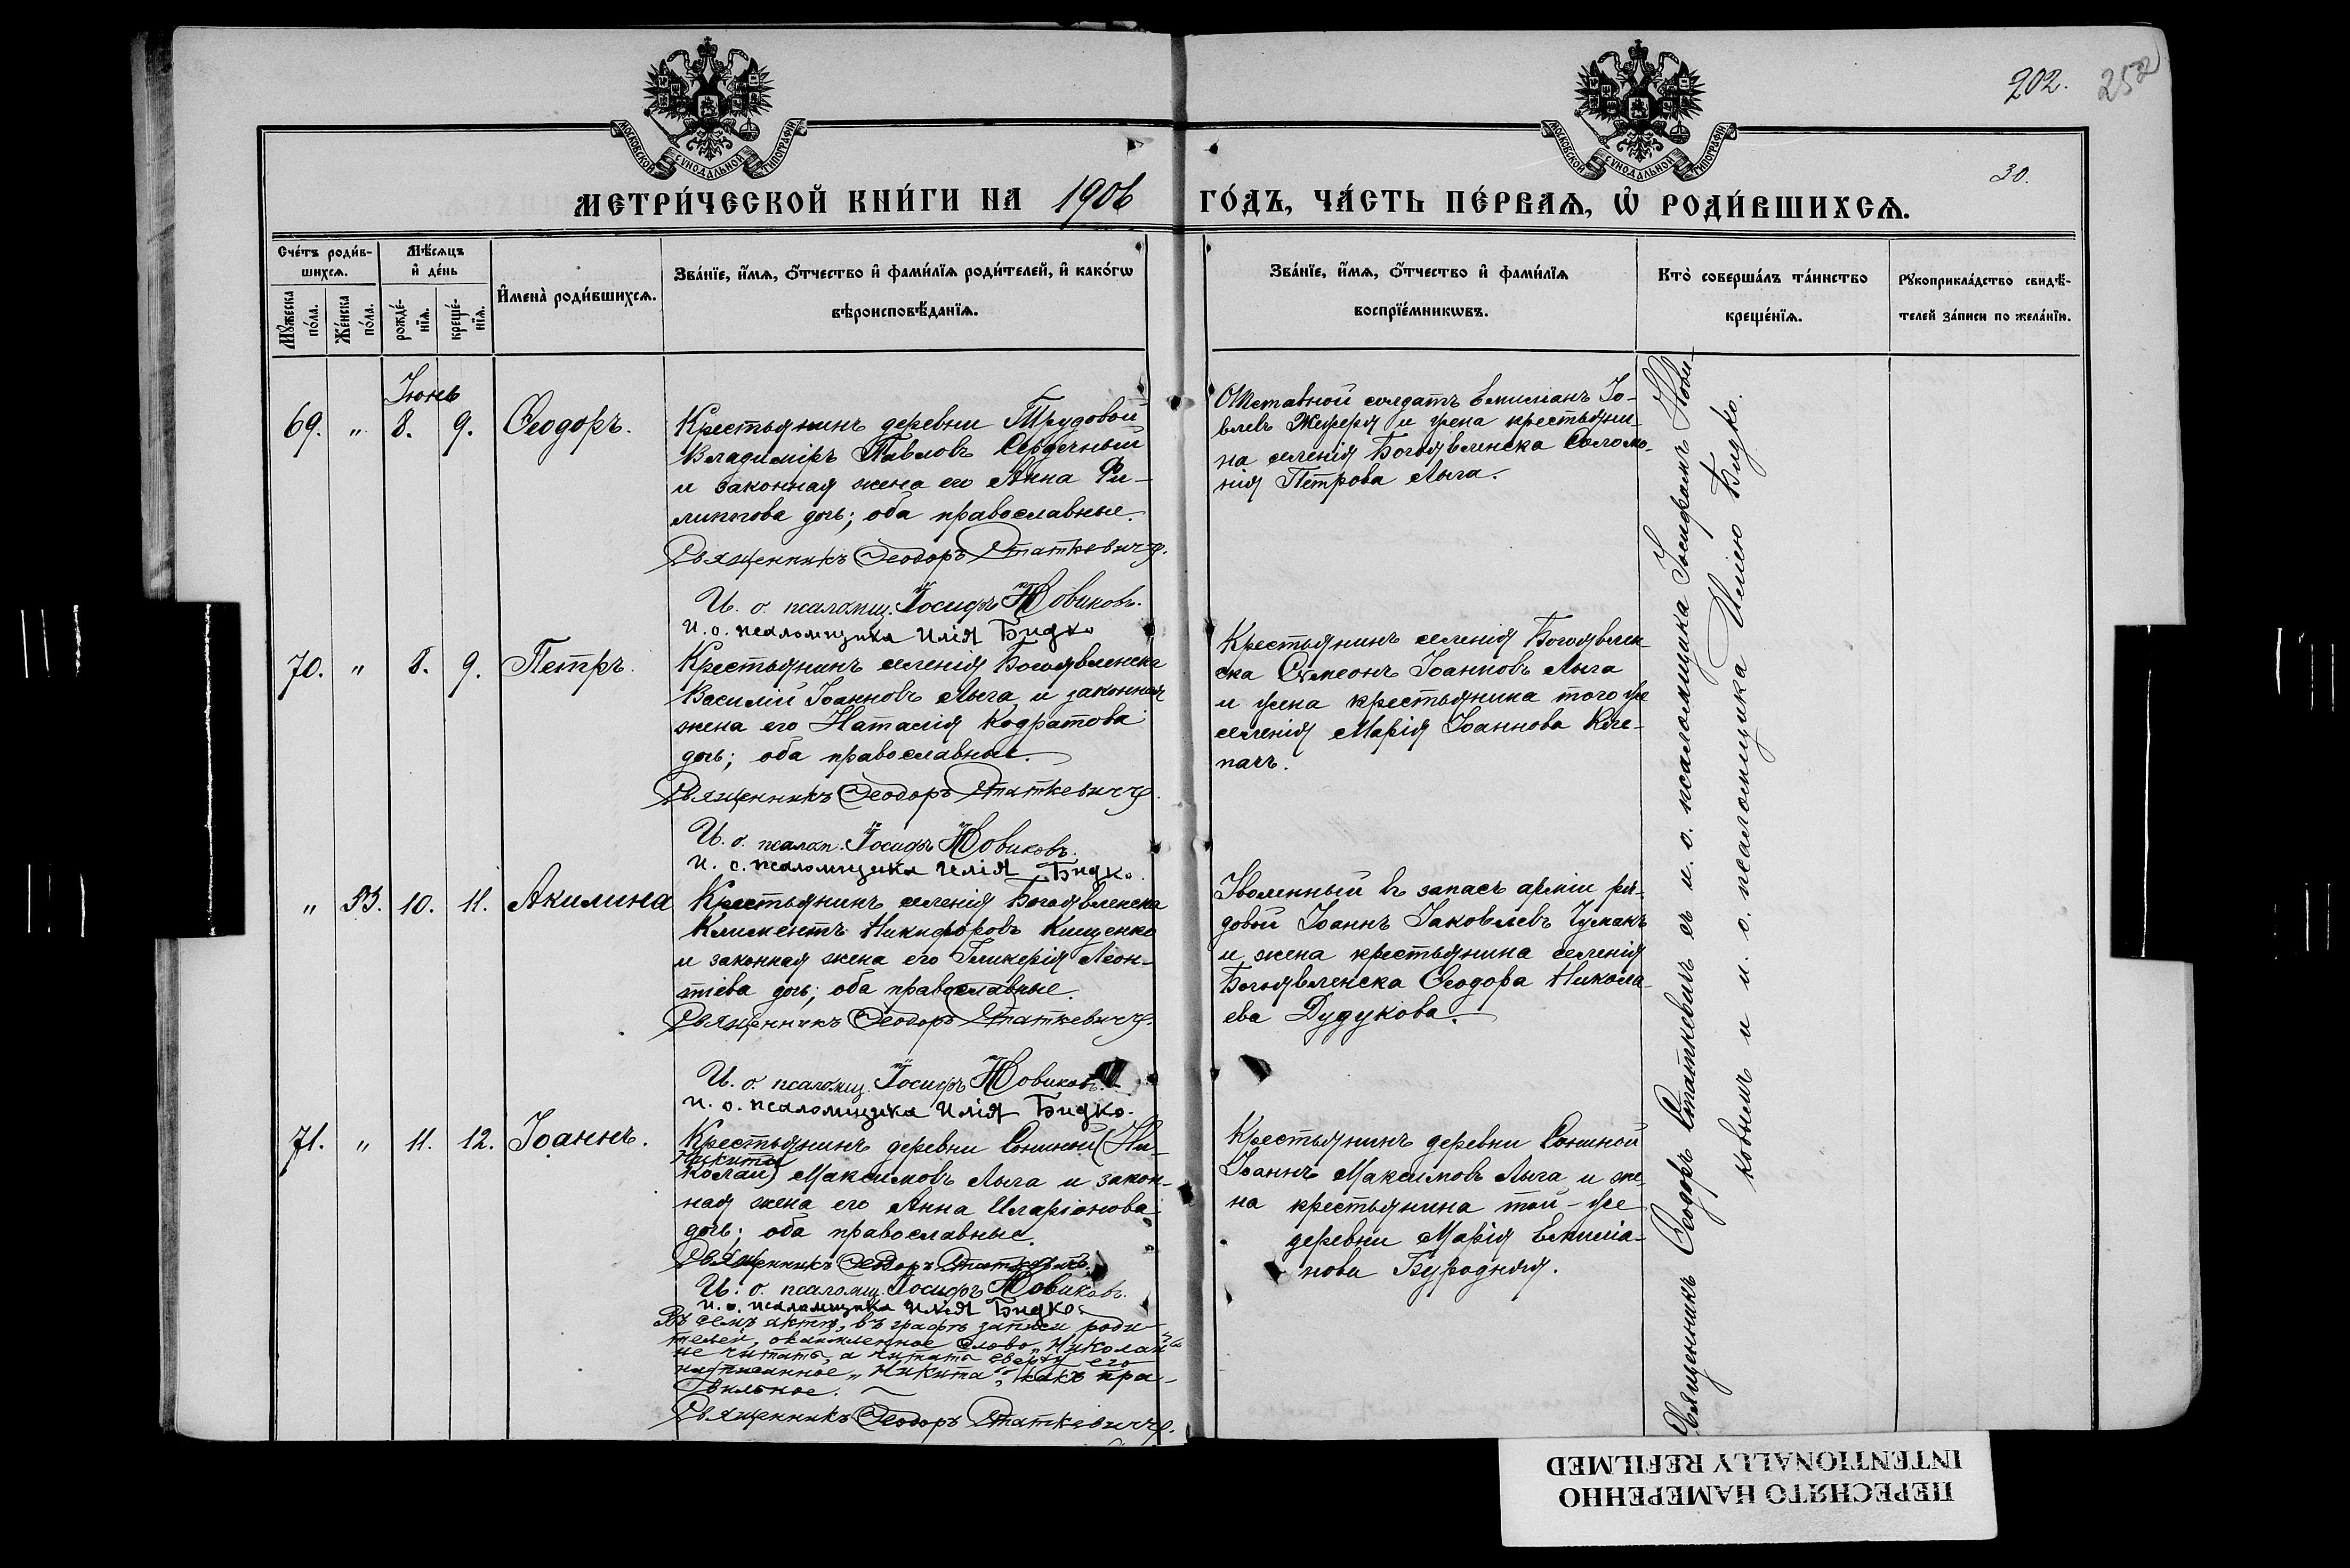 202. 252
МОСКОВСКОЙ СѴНОДАЛЬНОЙ ТИПОГРАФІИ
МОСКОВСКОЙ СѴНОДАЛЬНОЙ ТИПОГРАФІИ
30.
МЕТРИ́ЧЕСКОЙ КНИ́ГИ НА 1906 ГО́ДЪ, ЧА́СТЬ ПЕ́РВАѦ, Ѡ҆ РОДИ́ВШИХСѦ.
Сче́тъ роди́в-
шихсѧ.
Мѣ́сѧцъ
и҆ де́нь
Мꙋ́жеска
по́ла.
Же́нска
по́ла.
рожде́-
нїѧ.
креще́-
нїѧ.
И҆мена̀ роди́вшихсѧ.
Зва́нїе, и҆́мѧ, ѻ҆́тчество и҆ фами́лїѧ роди́телей, и҆ како́гѡ
вѣроисповѣ́данїѧ.
Зва́нїе, и҆́мѧ, ѻ҆́тчество и҆ фами́лїѧ
воспрїе́мникѡвъ.
Кто̀ соверша́лъ та́инство
креще́нїѧ.
Рꙋкоприкла́дство свидѣ́-
телей за́писи по жела́нїю.
Іюнь
69. " 8. 9. Ѳеодоръ.
Крестьянинъ деревни Трудовой
Владиміръ Павловъ Сердечный
и законная жена его Анна Фи-
липпова дочь; оба православные.
Священникъ Ѳеодоръ Статкевичъ.
И. о. псаломщ. Іосифъ Новиковъ.
И. о. псаломщика Илія Бидко
Отставной солдатъ Емиліанъ Іо-
влевъ и жена крестьяни-
на селенія Богоявленска Соломо-
нія Петрова Лыга.
70. " 8. 9. Петръ.
Крестьянинъ селенія Богоявленска
Василій Іоанновъ Лыга и законная
жена его Наталія Кодратова
дочь; оба православные.
Священникъ Ѳеодоръ Статкевичъ.
И. о. псалом. Іосифъ Новиковъ.
И. о. псаломщика Илія Бидко.
Крестьянинъ селенія Богоявлен-
ска Симеонъ Іоанновъ Лыга
и жена крестьянина того же
селенія Марія Іоаннова Кле-
пачъ.
" 53. 10. 11. Акилина
Крестьянинъ селенія Богоявленска
Климентъ Никифоровъ Кищенко
и законная жена его Гликерія Леон-
тіева дочь; оба православные.
Священникъ Ѳеодоръ Статкевичъ.
И. о. псаломщ. Іосифъ Новиковъ.
И. о. псаломщика Илія Бидко.
Уволенный въ запасъ арміи ря-
довой Іоаннъ Іаковлевъ Чумакъ
и жена крестьянина селенія
Богоявленска Ѳеодора Никола-
ева Дудукова.
71. " 11. 12. Іоаннъ.
Крестьянинъ деревни (Ни-
Никита
колай) Максимовъ Лыга и закон-
ная жена его Анна Иларіонова
дочь; оба православные.
Священникъ Ѳеодоръ Статкевичъ.
И. о. псаломщ. Іосифъ Новиковъ.
И. о. псаломщика Илія Бидко.
Въ семъ актѣ, въ графѣ записи роди-
телей, окаймленное слово "Николай"
не читать, а читать сверху его
надписанное "Никита", какъ пра-
вильное.
Священникъ Ѳеодоръ Статкевичъ.
Крестьянинъ деревни
Іоаннъ Максимовъ Лыга и же-
на крестьянина той-же
деревни Марія Емиліа-
нова
Священникъ Ѳеодоръ Статкевичъ съ и. о. псаломщика Іосифомъ Нови-
ковымъ и и. о. псаломщика Иліею Бидко.
ПЕРЕСНЯТО НАМЕРЕННО
INTENTIONALLY REFILMED